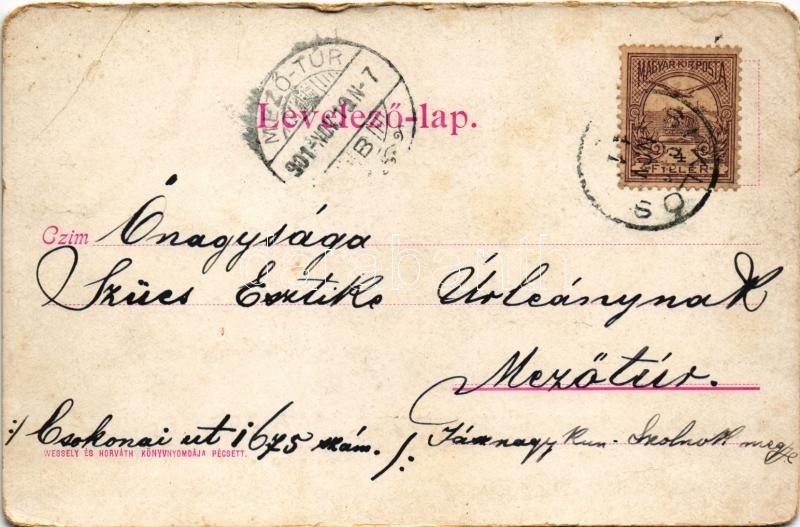 MEZŐ-TÚR
901 NOV 12 N-7
Levelező-lap.
MAGYAR KIR. POSTA
FILLÉR
Czim Őnagysága
Szücs Esztike Úrleánynak
Mezőtúr.
:/ Csokonai ut 1675 szám. /: Jásznagykun-Szolnok megye
WESSELY ÉS HORVÁTH KÖNYVNYOMDÁJA PÉCSETT.